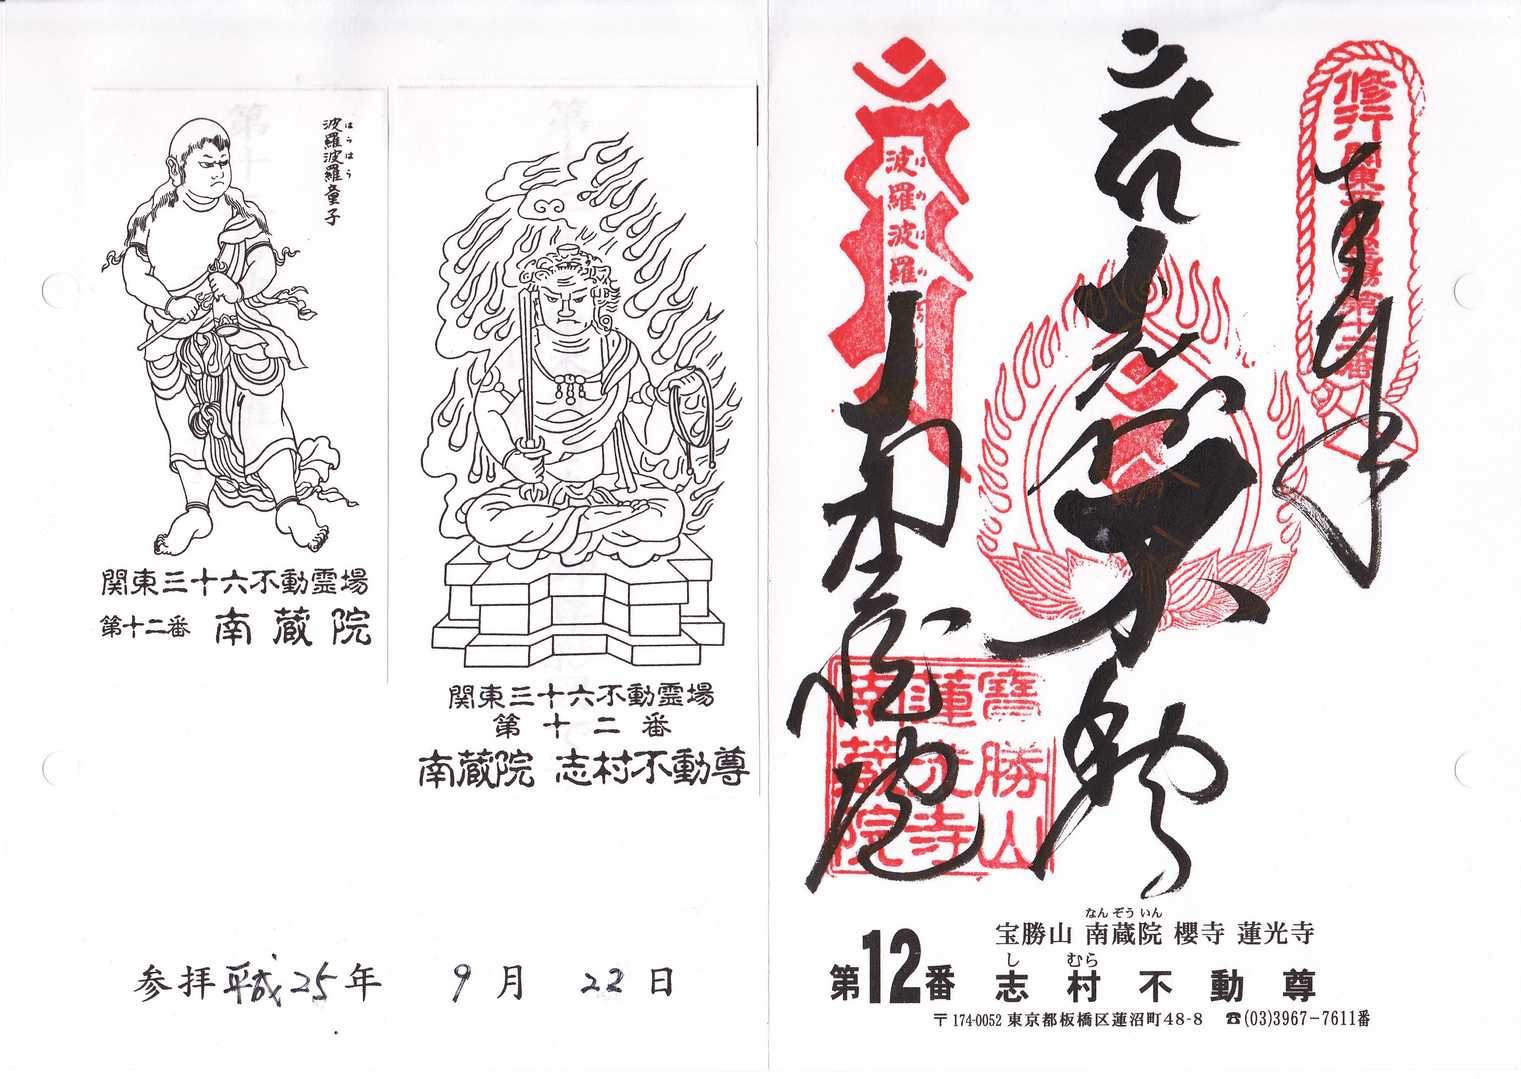 波羅波羅童子
はらはら
関東三十六不動霊場
第十二番 南蔵院
関東三十六不動霊場
第十二番
南蔵院 志村不動尊
参拝 平成25年 9月 22日
修行
奉拝
波羅波羅
志村不動尊
南蔵院
寶勝山
蓮光寺
南蔵院
なんぞういん
宝勝山 南蔵院 櫻寺 蓮光寺
第12番
しむら
志村不動尊
〒174-0052 東京都板橋区蓮沼町48-8 ☎(03)3967-7611番